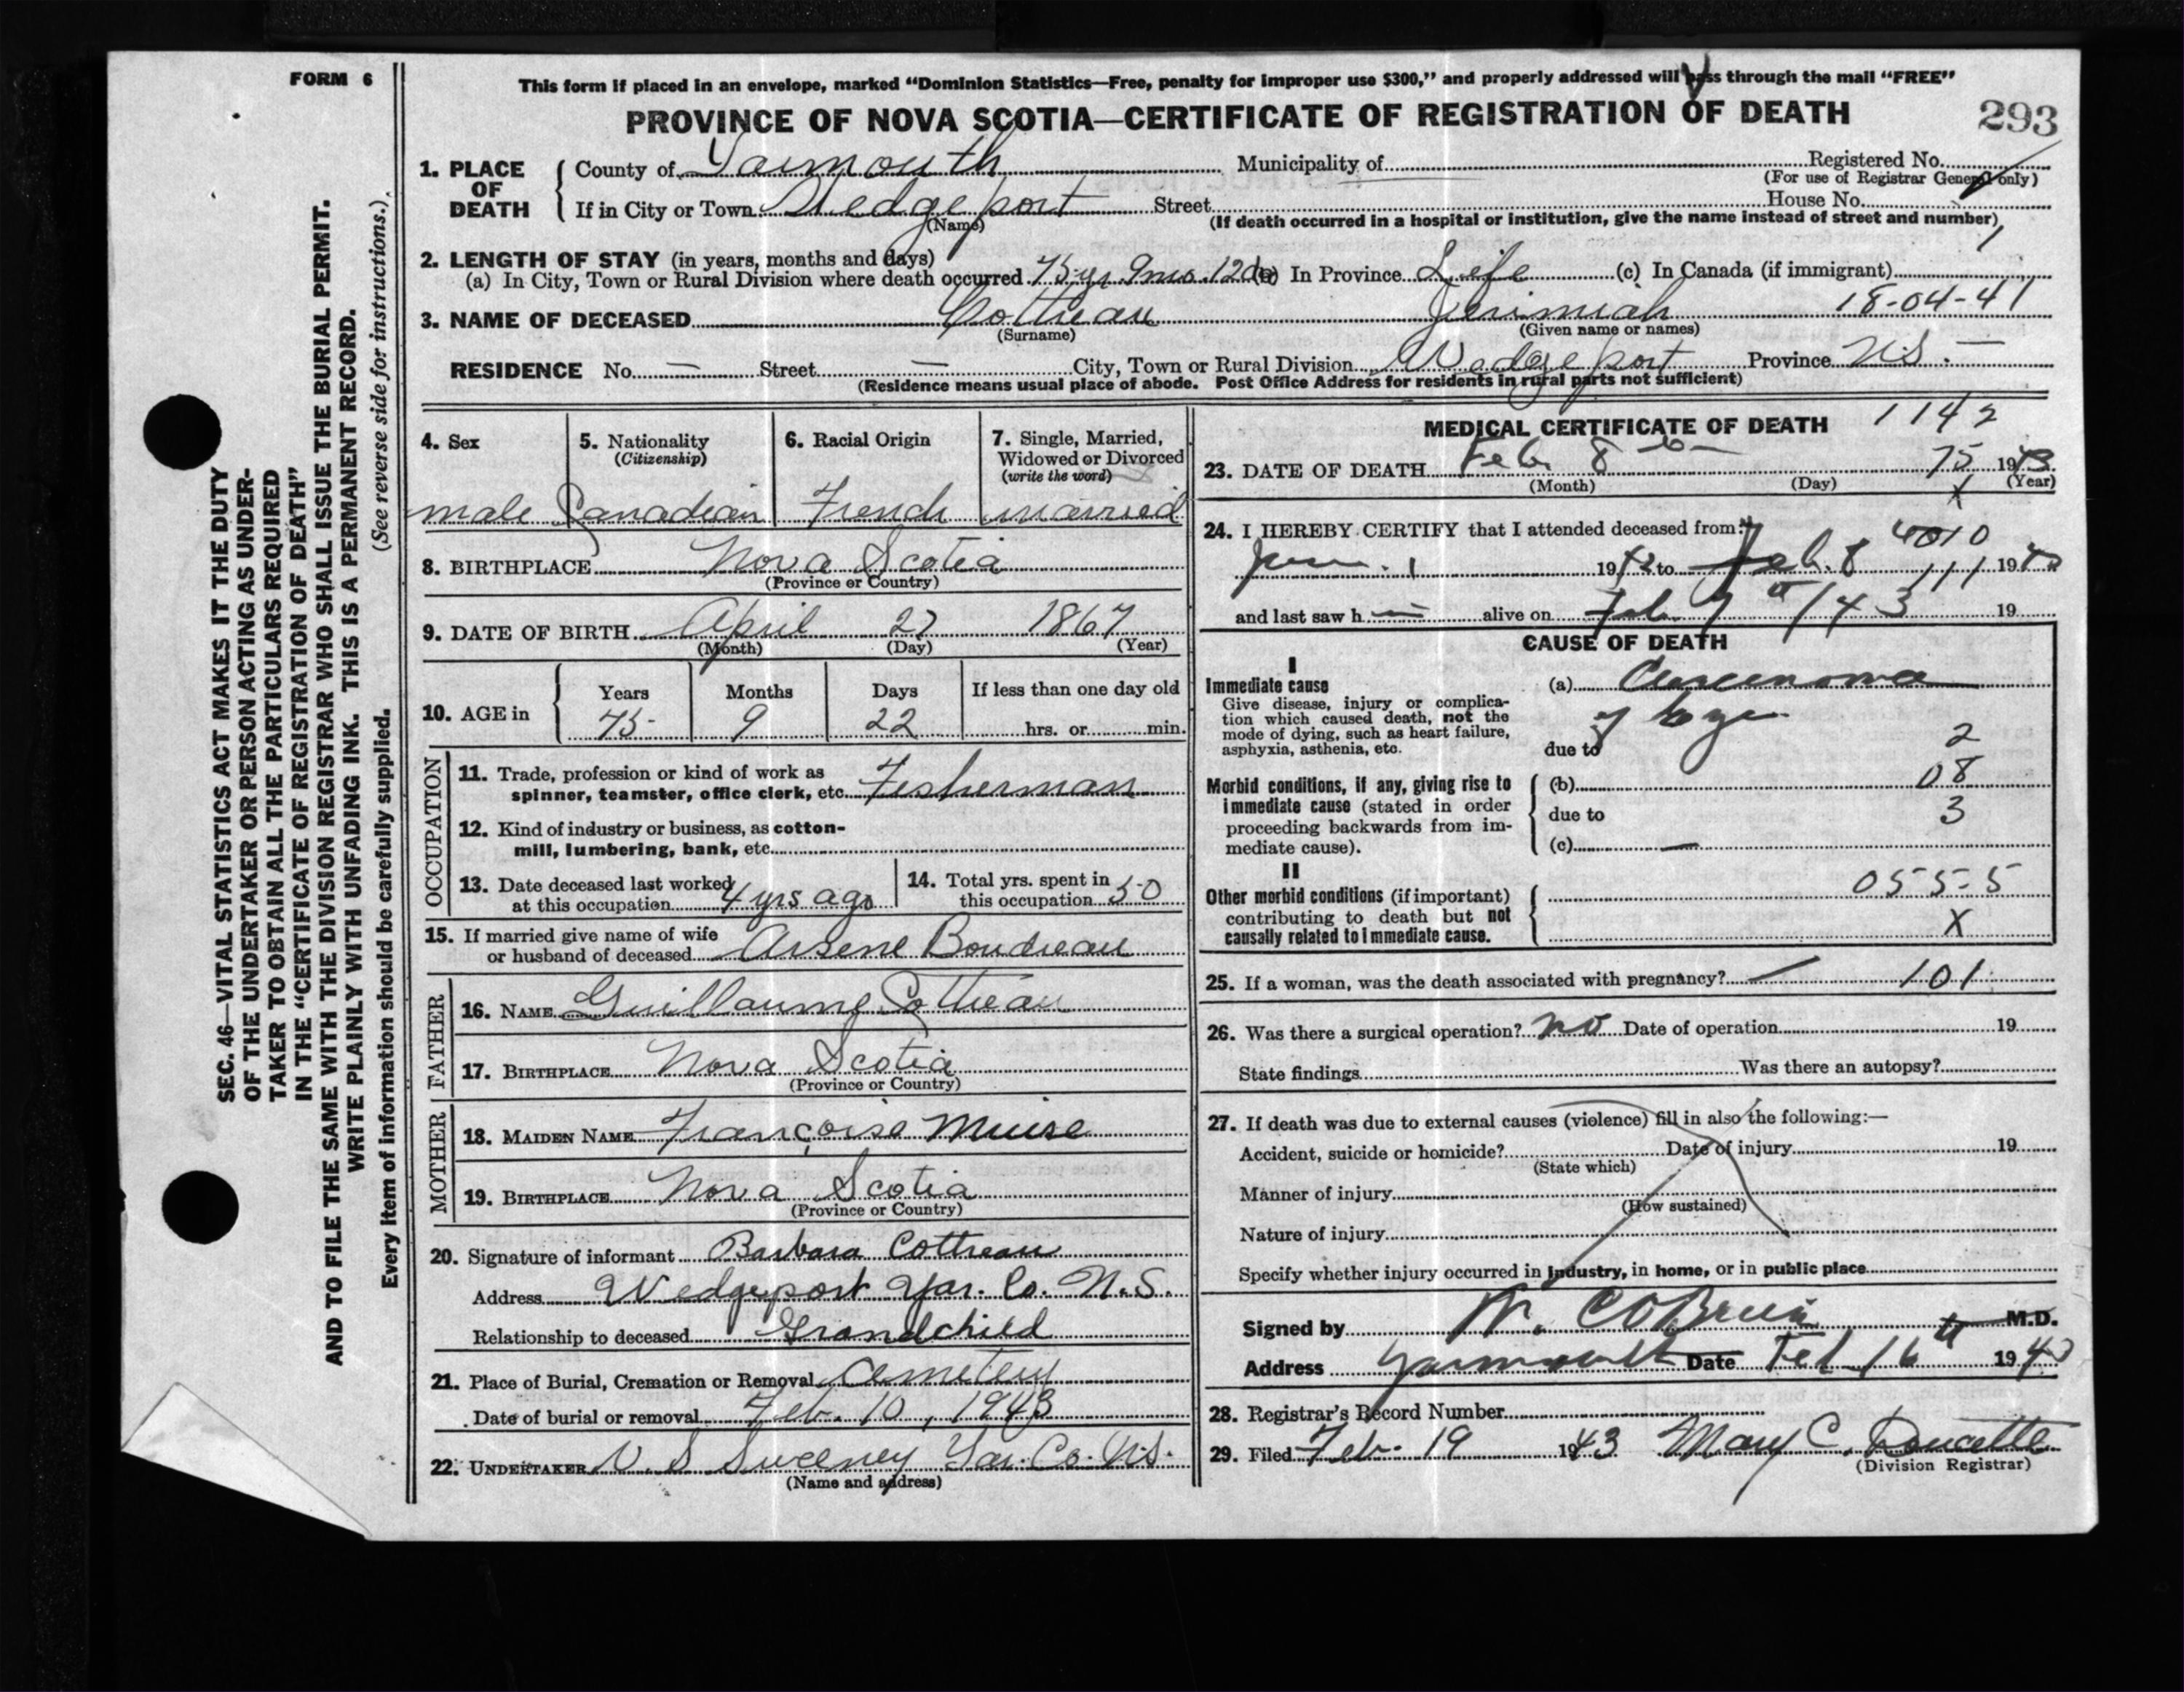 FORM 6
This form if placed in an envelope, marked “Dominion Statistics—Free, penalty for improper use $300,” and properly addressed will pass through the mail “FREE”
PROVINCE OF NOVA SCOTIA—CERTIFICATE OF REGISTRATION OF DEATH
293
1. PLACE OF DEATH County of Yarmouth Municipality of Registered No.
(For use of Registrar General only)
If in City or Town Wedgeport Street House No.
(Name) (If death occurred in a hospital or institution, give the name instead of street and number)
2. LENGTH OF STAY (in years, months and days)
(a) In City, Town or Rural Division where death occurred 75 yr 9 mo. 12 da (b) In Province Life (c) In Canada (if immigrant)
3. NAME OF DECEASED Cottreau Jerimiah 18-04-41
(Surname) (Given name or names)
RESIDENCE No. — Street — City, Town or Rural Division Wedgeport Province N.S. —
(Residence means usual place of abode. Post Office Address for residents in rural parts not sufficient)
4. Sex 5. Nationality (Citizenship) 6. Racial Origin 7. Single, Married, Widowed or Divorced (write the word)
male Canadian French married
8. BIRTHPLACE Nova Scotia
(Province or Country)
9. DATE OF BIRTH April 27 1867
(Month) (Day) (Year)
10. AGE in Years Months Days If less than one day old
75 9 22 hrs. or min.
OCCUPATION
11. Trade, profession or kind of work as spinner, teamster, office clerk, etc. Fisherman
12. Kind of industry or business, as cotton-mill, lumbering, bank, etc.
13. Date deceased last worked at this occupation 4 yrs ago
14. Total yrs. spent in this occupation 50
15. If married give name of wife or husband of deceased Arsene Boudreau
FATHER
16. NAME Guillaume Cottreau
17. BIRTHPLACE Nova Scotia
(Province or Country)
MOTHER
18. MAIDEN NAME Françoise Muise
19. BIRTHPLACE Nova Scotia
(Province or Country)
20. Signature of informant Barbara Cottreau
Address Wedgeport Yar. Co. N.S.
Relationship to deceased Grandchild
21. Place of Burial, Cremation or Removal Cemetery
Date of burial or removal Feb. 10, 1943
22. UNDERTAKER V. S Sweeney Yar. Co. N.S.
(Name and address)
MEDICAL CERTIFICATE OF DEATH 1142
23. DATE OF DEATH Feb. 8 75 1943
(Month) (Day) (Year)
X
24. I HEREBY CERTIFY that I attended deceased from:
4010
1 1942 to Feb. 8 111 1943
and last saw h alive on Feb 7 /43 19
CAUSE OF DEATH
I
Immediate cause
Give disease, injury or complication which caused death, not the mode of dying, such as heart failure, asphyxia, asthenia, etc.
(a) Carcinoma
of
due to 2
Morbid conditions, if any, giving rise to immediate cause (stated in order proceeding backwards from immediate cause).
(b) 08
due to 3
(c) —
II
Other morbid conditions (if important) contributing to death but not causally related to immediate cause.
055-5
X
25. If a woman, was the death associated with pregnancy? — 101
26. Was there a surgical operation? no Date of operation 19
State findings Was there an autopsy?
27. If death was due to external causes (violence) fill in also the following:—
Accident, suicide or homicide? Date of injury 19
(State which)
Manner of injury
(How sustained)
Nature of injury
Specify whether injury occurred in industry, in home, or in public place
Signed by W. C O'Brien M.D.
Address Yarmouth Date Feb 16 1943
28. Registrar's Record Number
29. Filed Feb. 19 1943 Mary C. Doucette
(Division Registrar)
SEC. 46—VITAL STATISTICS ACT MAKES IT THE DUTY
OF THE UNDERTAKER OR PERSON ACTING AS UNDER-
TAKER TO OBTAIN ALL THE PARTICULARS REQUIRED
IN THE “CERTIFICATE OF REGISTRATION OF DEATH”
AND TO FILE THE SAME WITH THE DIVISION REGISTRAR WHO SHALL ISSUE THE BURIAL PERMIT.
WRITE PLAINLY WITH UNFADING INK. THIS IS A PERMANENT RECORD.
(See reverse side for instructions.)
Every item of information should be carefully supplied.